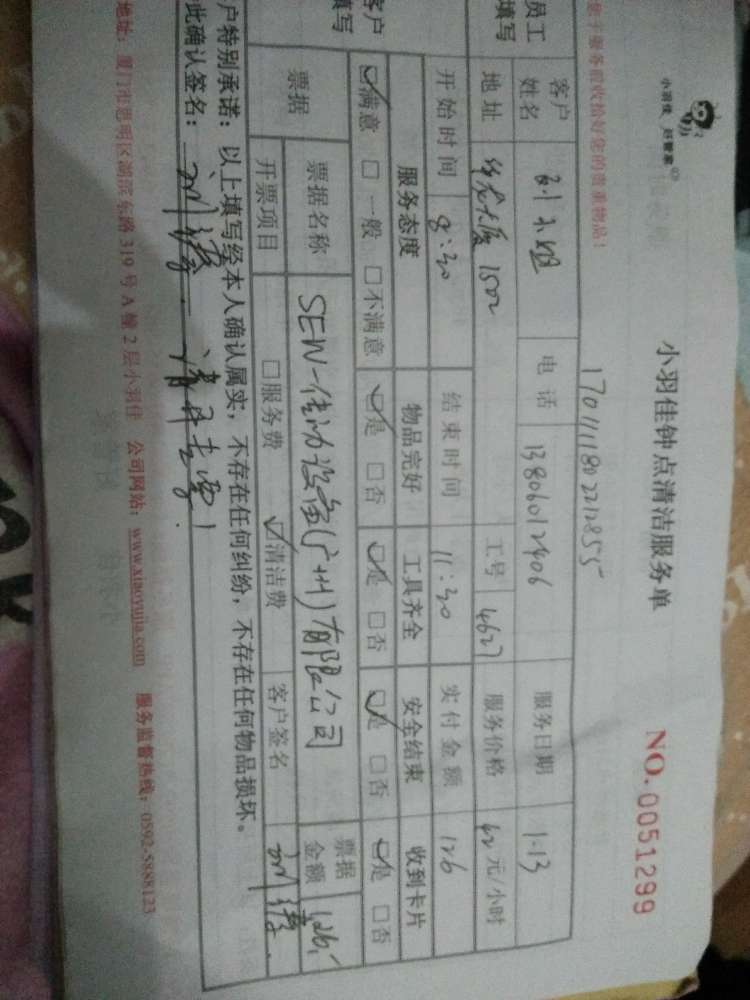 小羽佳 好管家
小羽佳钟点清洁服务单
NO.0051299
请于服务前收拾好您的贵重物品!
1701111802212855
员工填写
客户姓名 刘小姐 电话 13806012406 服务日期 1.13
地址 1502 工号 4627 服务价格 42元/小时
开始时间 8:30 结束时间 11:30 实付金额 126
客户填写
服务态度 物品完好 工具齐全 安全结束 收到卡片
☑满意 □一般 □不满意 ☑是 □否 ☑是 □否 ☑是 □否 ☑是 □否
票据 票据名称 SEW-传动设备(广州)有限公司 票据金额 126.-
开票项目 □服务费 ☑清洁费 客户签名
户特别承诺:以上填写经本人确认属实,不存在任何纠纷,不存在任何物品损坏。
此确认签名:
地址:厦门市思明区湖滨东路319号A幢2层小羽佳 公司网站:www.xiaoyujia.com 服务监督热线:0592-5888123